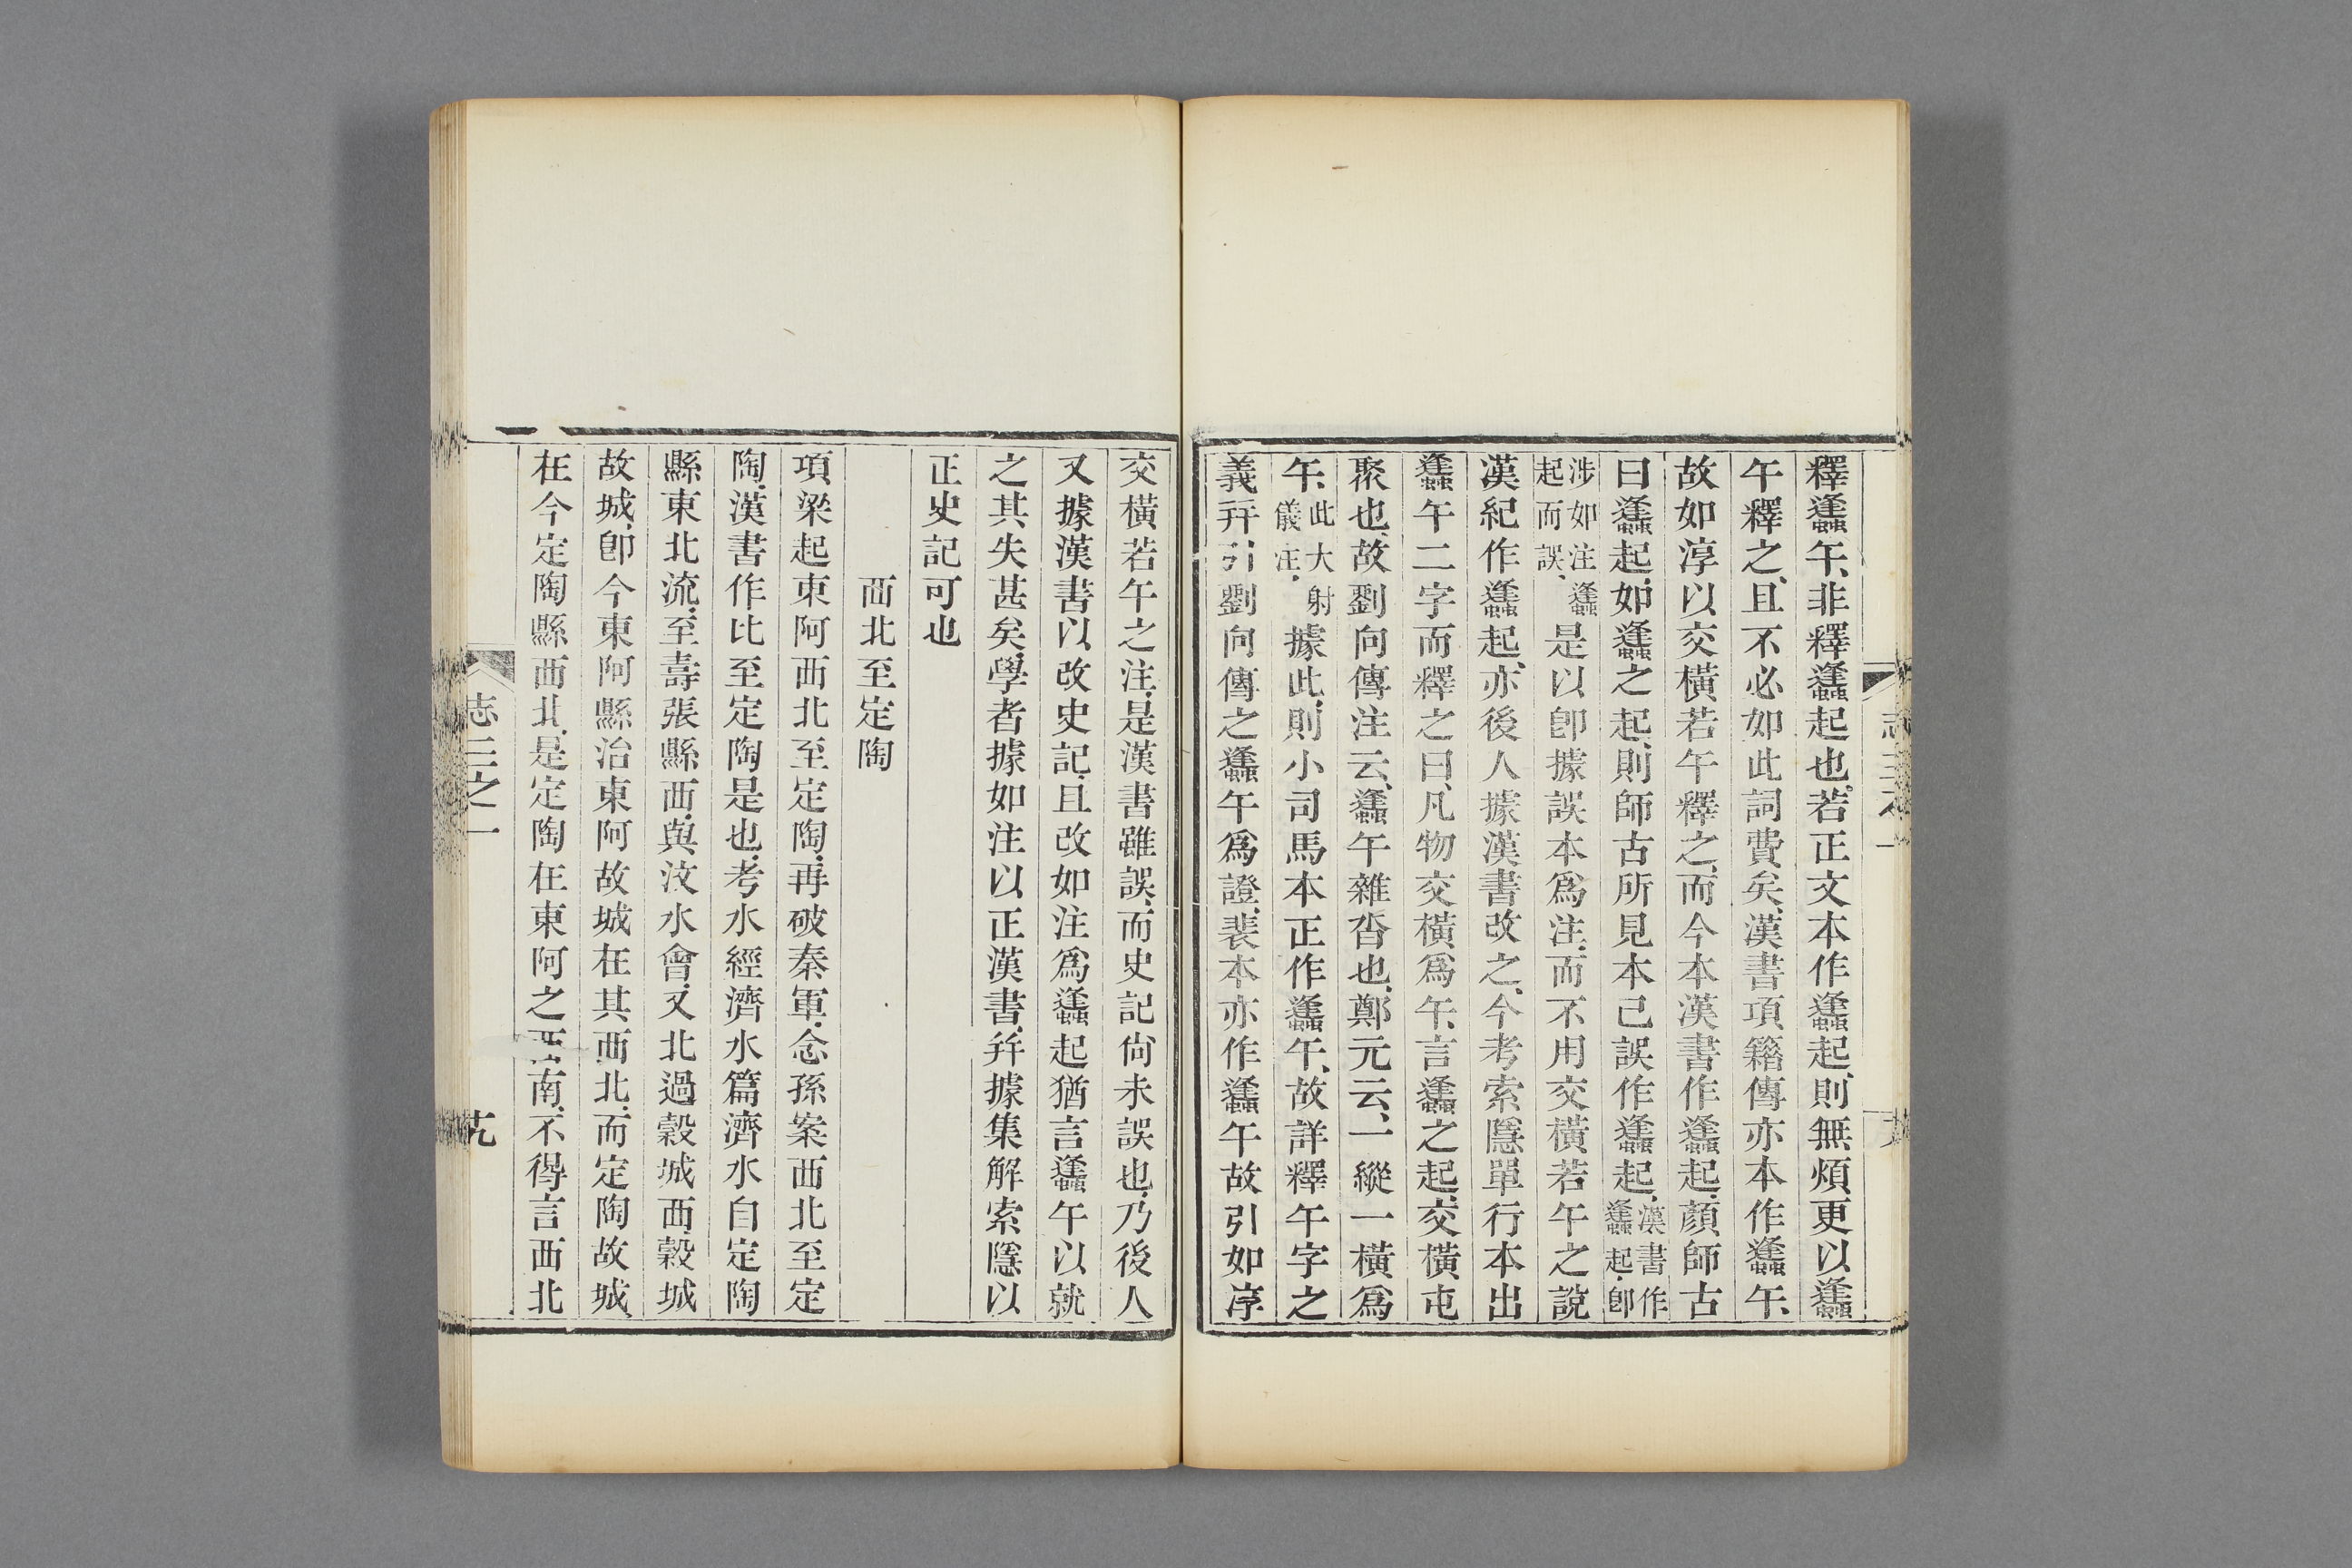 釋蠭午、非釋蠭起也、若正文本作蠭起、則無煩更以蠭
午釋之、且不必如此詞費矣、漢書項籍傳亦本作蠭午、
故如淳以交橫若午釋之、而今本漢書作蠭起、顏師古
曰蠭起、如蠭之起、則師古所見本已誤作蠭起、漢書作蠭起、卽
涉如注蠭起而誤、是以卽據誤本爲注、而不用交橫若午之說
漢紀作蠭起、亦後人據漢書改之、今考索隱單行本出
蠭午二字而釋之曰、凡物交橫爲午、言蠭之起、交橫屯
聚也、故劉向傳注云、蠭午雜沓也、鄭元云、一縱一橫爲
午、此大射儀注、據此、則小司馬本正作蠭午、故詳釋午字之
義幷引劉向傳之蠭午爲證、裴本亦作蠭午故引如淳
交橫若午之注、是漢書雖誤、而史記尙未誤也、乃後人
又據漢書以改史記、且改如注爲蠭起猶言蠭午以就
之其失甚矣、學者據如注以正漢書、幷據集解索隱以
正史記可也
西北至定陶
項梁起東阿西北至定陶、再破秦軍、念孫案西北至定
陶、漢書作比至定陶是也、考水經濟水篇濟水自定陶
縣東北流、至壽張縣西、與汶水會、又北過穀城西、穀城
故城、卽今東阿縣治東阿故城在其西北、而定陶故城、
在今定陶縣西北、是定陶在東阿之西南、不得言西北
志三之一
十九